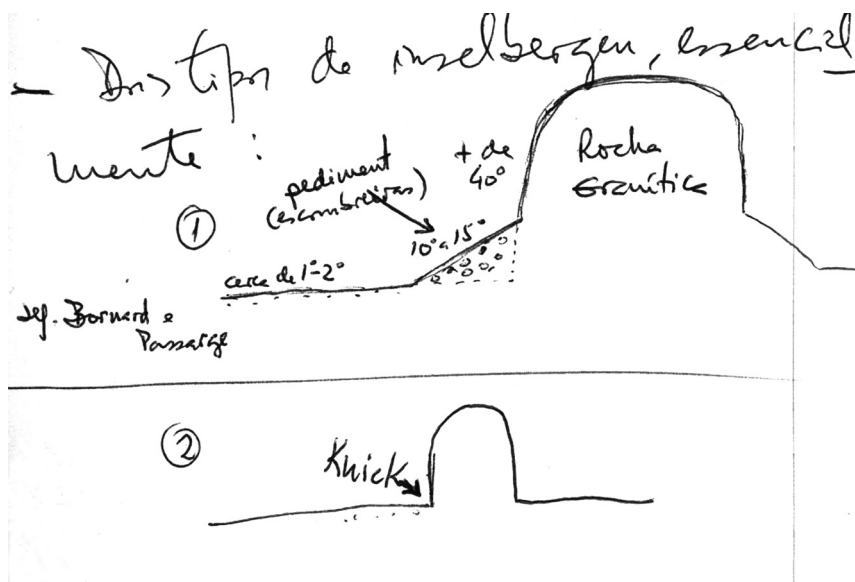 — Dois tipos de inselbergen, essencial
mente :
①
pediment
(escombreiras)
+ de
40°
Rocha
Granítica
10° a 15°
cerca de 1°-2°
seg. Bornard e
Passarge
②
Knick